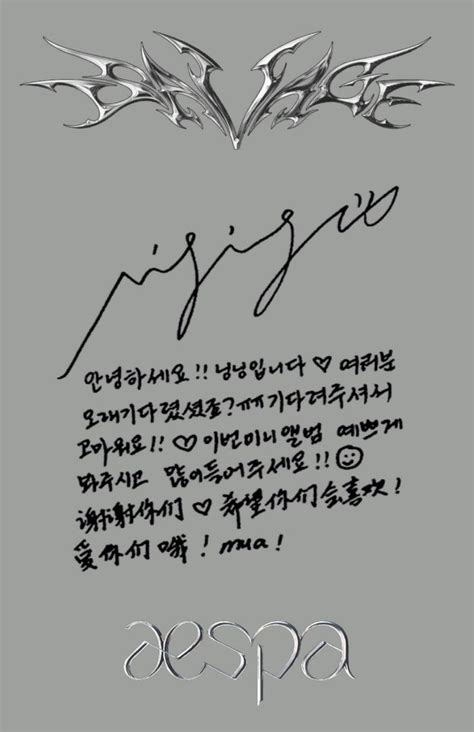 SAVAGE
ningning
안녕하세요!! 닝닝입니다 ♡ 여러분
오래기다렸셨죠? ㅠㅠ 기다려주셔서
고마워요!! ♡ 이번 미니앨범 예쁘게
봐주시고 많이들어주세요!! ☺
谢谢你们 ♡ 希望你们会喜欢!
爱你们哦! mua!
aespa